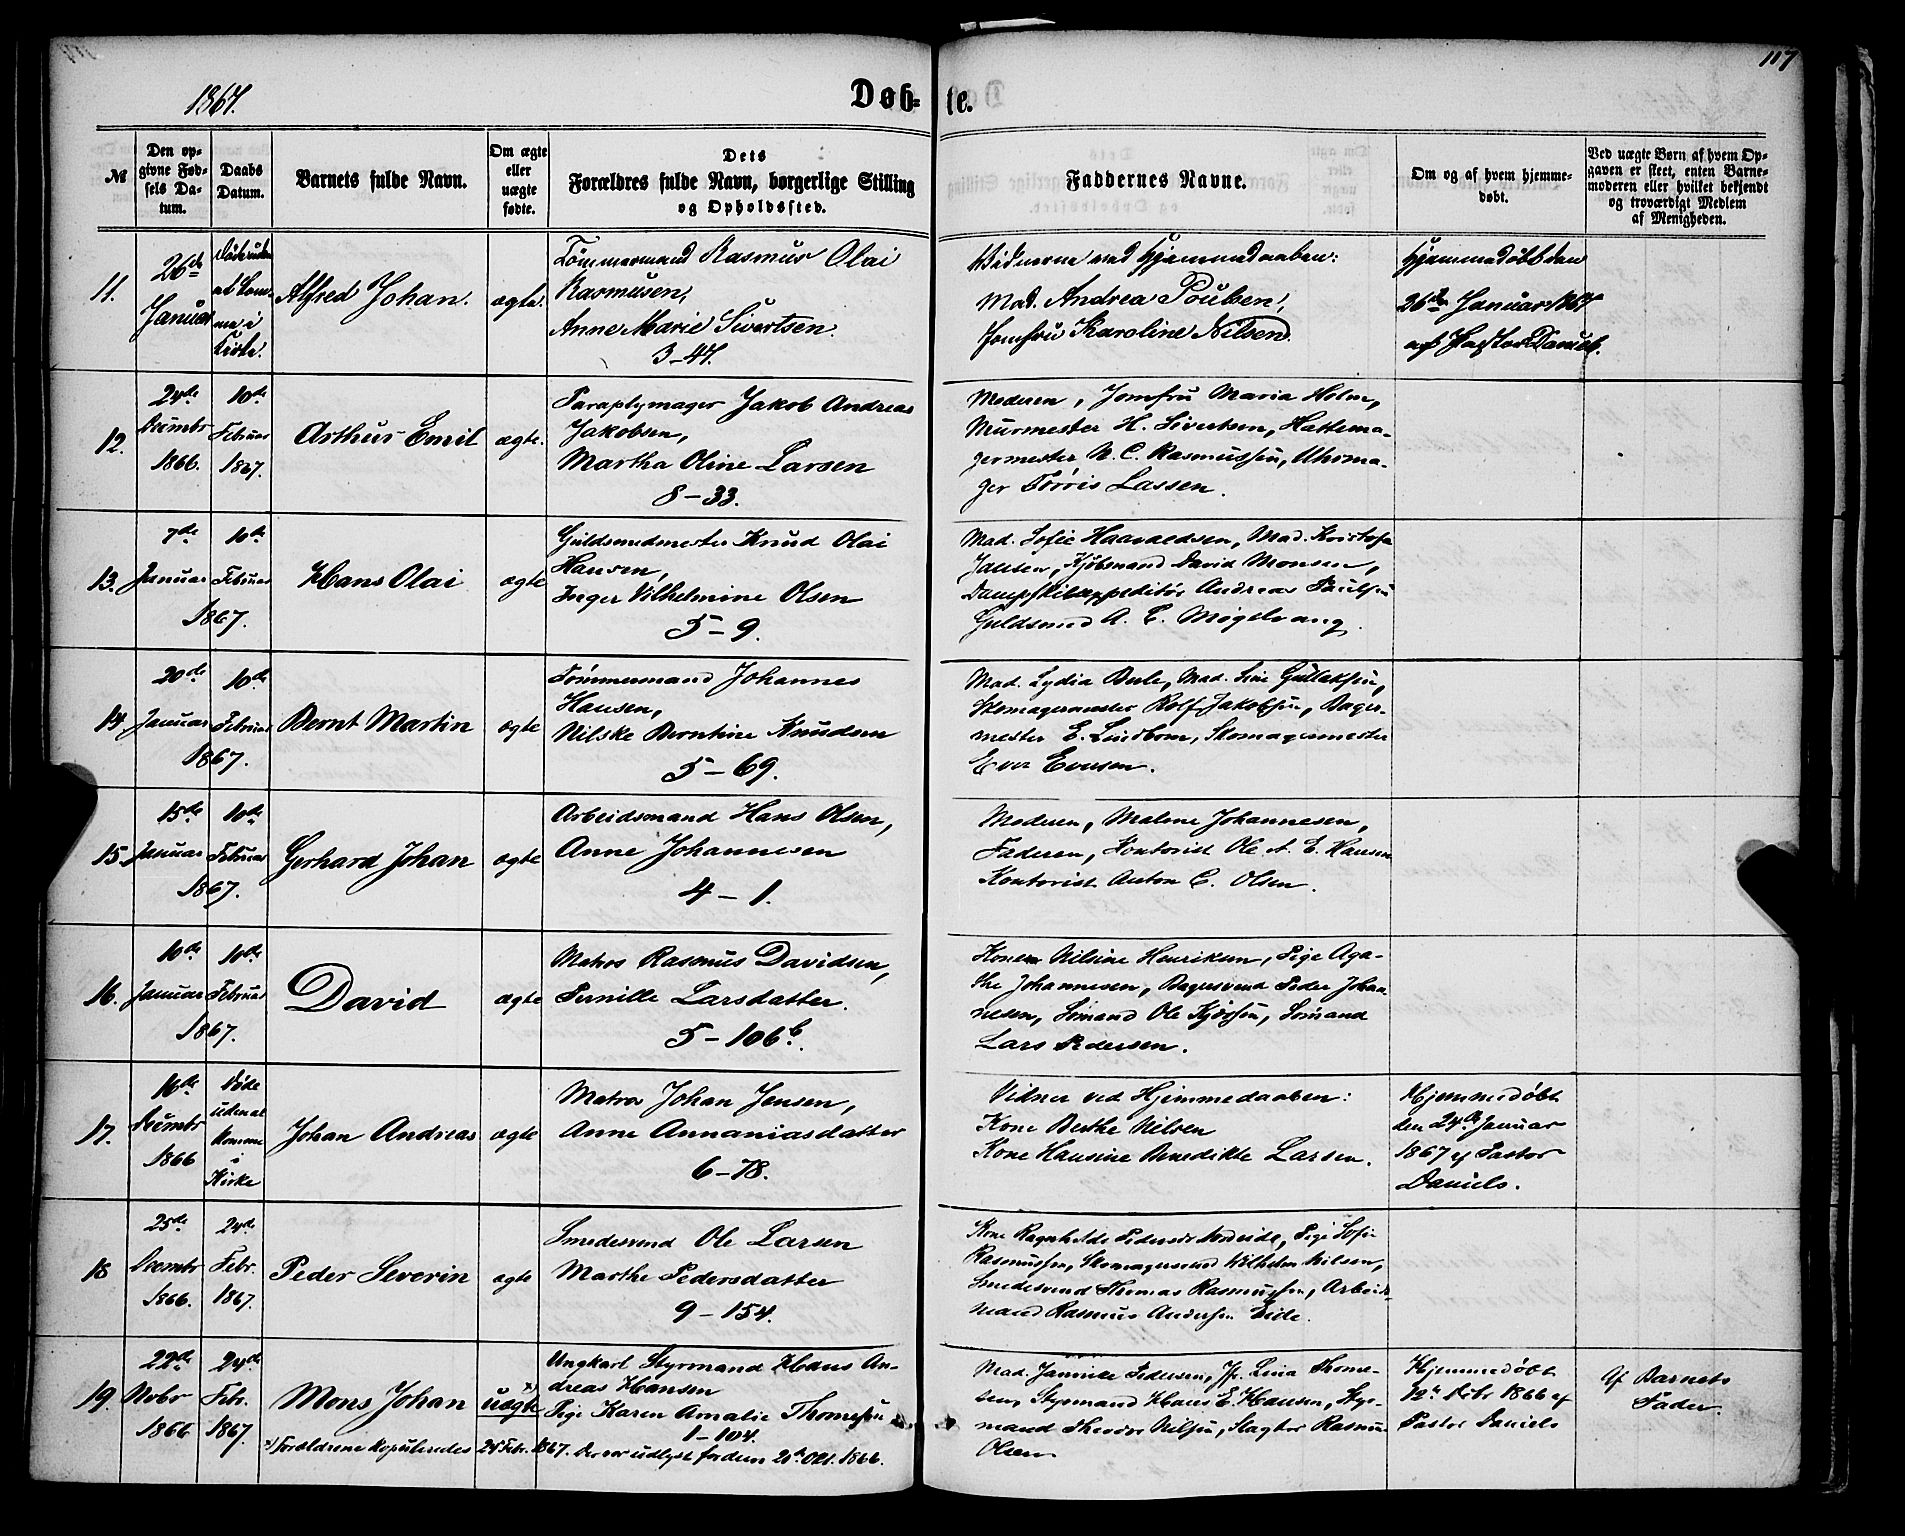 117
1867.
Døb-
te.
№
Den op-
givne Fød-
sels Da-
tum.
Daabs
Datum.
Barnets fulde Navn.
Om ægte
eller
uægte
fødte.
Dets
Forældres fulde Navn, borgerlige Stilling
og Opholdssted.
Faddernes Navne.
Om og af hvem hjemme-
døbt.
Ved uægte Børn af hvem Op-
gaven er skeet, enten Barne-
moderen eller hvilket bekjendt
og troværdigt Medlem
af Menigheden.
11.
26de
Januar
Døde uden
at kom-
me i
Kirke.
Alfred Johan.
ægte.
Tømmermand Rasmus Olai
Rasmusen,
Anne Marie Sivertsen.
3-47.
Vidnerne ved Hjemmedaaben:
Mad. Andrea Poulsen,
Jomfru Karoline Nilsen.
Hjemmedøbt den
26de Januar 1867
af Pastor Daniels.
12.
24de
Decembr
1866.
10de
Februar
1867.
Arthur Emil
ægte.
Paraplymager Jakob Andreas
Jakobsen,
Martha Oline Larsen
8-33.
Moderen, Jomfru Maria Holm,
Murmester H. Sivertsen, Hattema-
germester N. C. Rasmussen, Uhrma-
ger Tørris Lassen.
13.
7de
Januar
10de
Februar
1867.
Hans Olai
ægte
Guldsmedmester Knud Olai
Hansen,
Inger Vilhelmine Olsen
5-9.
Mad. Sofie Haavaldsen, Mad. Kristofa
Jansen, Kjøbmand David Monsen,
Dampskibsexpeditør Andreas Paulsen
Guldsmed A. C. Møgelvang.
14.
20de
Januar
10de
Februar
1867.
Bernt Martin
ægte
Tømmermand Johannes
Hansen,
Nilske Berntine Knudsen
5-69.
Mad. Lydia Berle, Mad. Sine Gullaksen,
Skomagermester Rolf Jakobsen, Bager-
mester E. Lindbom, Skomagermester
Ever Evensen.
15.
15de
Januar
10de
Februar
1867.
Gerhard Johan
ægte
Arbeidsmand Hans Olsen,
Anne Johannesen
4-1.
Moderen, Malene Johannesen,
Faderen, Kontorist Ole A. E. Hansen
Kontorist Anton C. Olsen.
16.
10de
Januar
10de
Februar
1867.
David
ægte
Matros Rasmus Davidsen,
Pernille Larsdatter.
5-106b.
Konen Nilsine Henriksen, Pige Aga-
the Johannesen, Bagersvend Peder Johan-
nesen, Sømand Ole Kjørsen, Sømand
Lars Pedersen.
17.
16de
Decembr
1866
Døde
uden at
komme
i
Kirke
Johan Andreas
ægte
Matros Johan Jensen,
Anne Annaniasdatter
6-78.
Vidner ved Hjemmedaaben:
Kone Berthe Nilsen
Kone Hansine Benedikte Larsen.
Hjemmedøbt
den 24de Januar
1867 af Pastor
Daniels.
18
25de
Decembr
1866.
24de
Febr.
1867.
Peder Severin
ægte
Smedesvend Ole Larsen
Marthe Pedersdatter
9-154.
Kone Ragnhilde Pedersdr Nordeide, Pige Sofie
Rasmussen, Skomagersvend Vilhelm Nilsen,
Smedesvend Thomas Rasmussen, Arbeids-
mand Rasmus Andersen Eide.
19.
22de
Novbr
1866
24de
Febr.
1867.
Mons Johan
x)
uægte
Ungkarl Styrmand Hans An-
dreas Hansen
Pige Karen Amalie Thomesen
1-104.
x) Forældrene kopuleredes 24 Febr. 1867. De var udlyst fordem 21de Okt. 1866.
Mad. Jannike Pedersen, Jfr. Lina Thome-
sen, Styrmand Hans E. Hansen, Styr-
mand Theodor Nilsen, Slagter Rasmus
Olsen
Hjemmedøbt
12te Debr 1866 af
Pastor Daniels
Af Barnets
Fader.